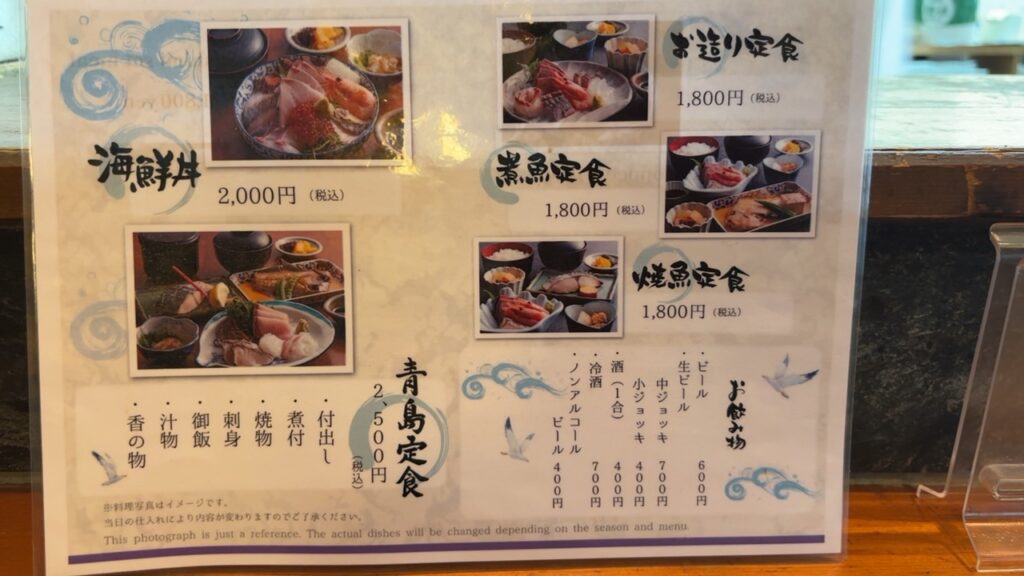 海鮮丼
2,000円（税込）
お造り定食
1,800円（税込）
煮魚定食
1,800円（税込）
焼魚定食
1,800円（税込）
青島定食
2、500円
（税込）
・付出し
・煮付
・焼物
・刺身
・御飯
・汁物
・香の物
お飲み物
・ビール 600円
・生ビール
中ジョッキ 700円
小ジョッキ 400円
・酒（1合） 400円
・冷酒 700円
・ノンアルコール
ビール 400円
※料理写真はイメージです。
当日の仕入れにより内容が変わりますのでご了承ください。
This photograph is just a reference. The actual dishes will be changed depending on the season and menu.